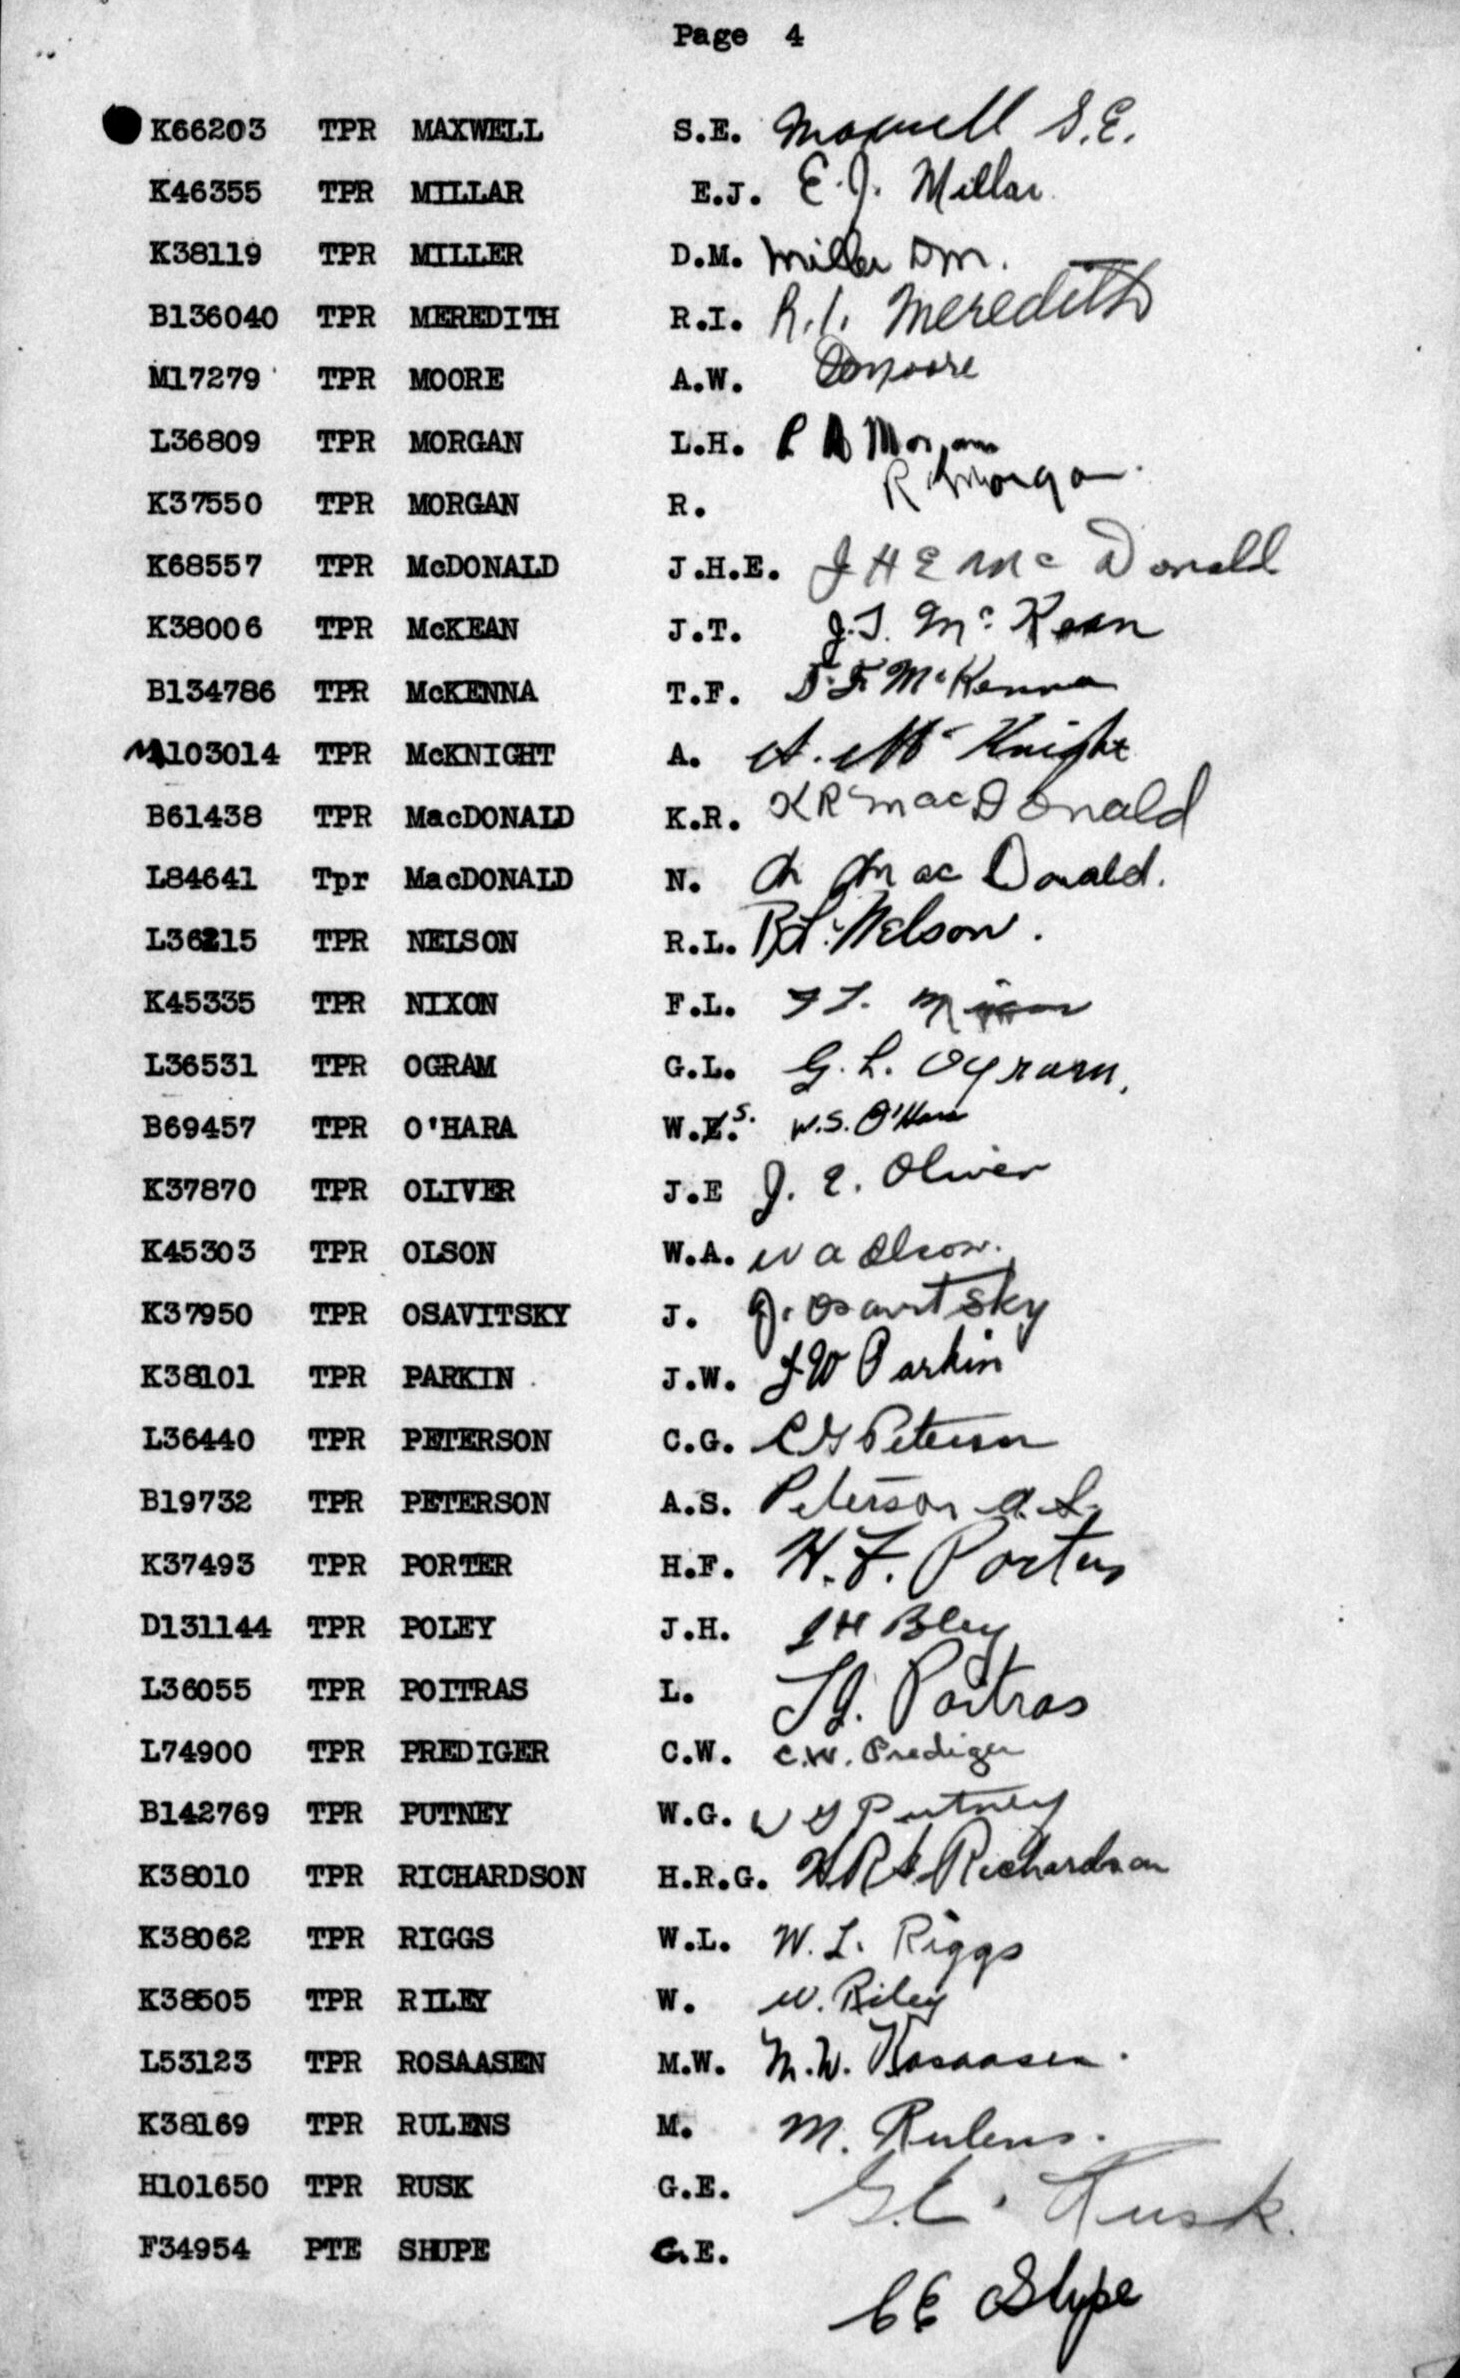 Page 4
K66203 TPR MAXWELL S.E. Maxwell S.E.
K46355 TPR MILLAR E.J. E.J. Millar
K38119 TPR MILLER D.M. Miller DM.
B136040 TPR MEREDITH R.I. R.I. Meredith
M17279 TPR MOORE A.W. Moore
L36809 TPR MORGAN L.H. Morgan
K37550 TPR MORGAN R. R Morgan.
K68557 TPR McDONALD J.H.E. J H E Mc Donald
K38006 TPR McKEAN J.T. J.T. Mc Kean
B134786 TPR McKENNA T.F. T.F. McKenna
M103014 TPR McKNIGHT A. A. Mc Knight
B61438 TPR MacDONALD K.R. K R MacDonald
L84641 Tpr MacDONALD N. N MacDonald.
L36215 TPR NELSON R.L. R.L. Nelson.
K45335 TPR NIXON F.L. F L.
L36531 TPR OGRAM G.L. G.L. Ogram.
B69457 TPR O'HARA W.E. S. W.S. O'Hara
K37870 TPR OLIVER J.E J.E. Oliver
K45303 TPR OLSON W.A. W A Olson.
K37950 TPR OSAVITSKY J. J. Osavitsky
K38101 TPR PARKIN J.W. J W Parkin
L36440 TPR PETERSON C.G. C G Peterson
B19732 TPR PETERSON A.S. Peterson A.S.
K37493 TPR PORTER H.F. H.F. Porter
D131144 TPR POLEY J.H. J H Poley
L36055 TPR POITRAS L. L J. Poitras
L74900 TPR PREDIGER C.W. C.W. Prediger
B142769 TPR PUTNEY W.G. W G Putney
K38010 TPR RICHARDSON H.R.G. H R G Richardson
K38062 TPR RIGGS W.L. W.L. Riggs
K38505 TPR RILEY W. W. Riley
L53123 TPR ROSAASEN M.W. M.W. Rosaasen.
K38169 TPR RULENS M. M. Rulens.
H101650 TPR RUSK G.E. G.E. Rusk.
F34954 PTE SHUPE C.E.
C E Shupe